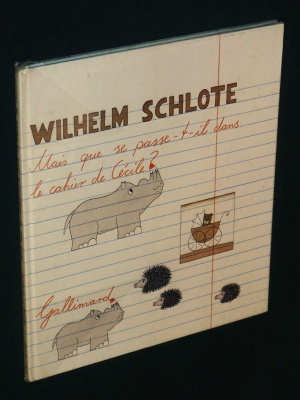 WILHELM SCHLOTE
Mais que se passe-t-il dans
le cahier de Cécile?
Gallimard